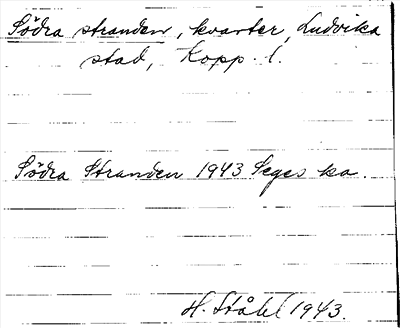 Södra stranden, kvarter, Ludvika
stad, Kopp. l.
Södra Stranden 1943 Seges ka.
H. Ståhl 1943.